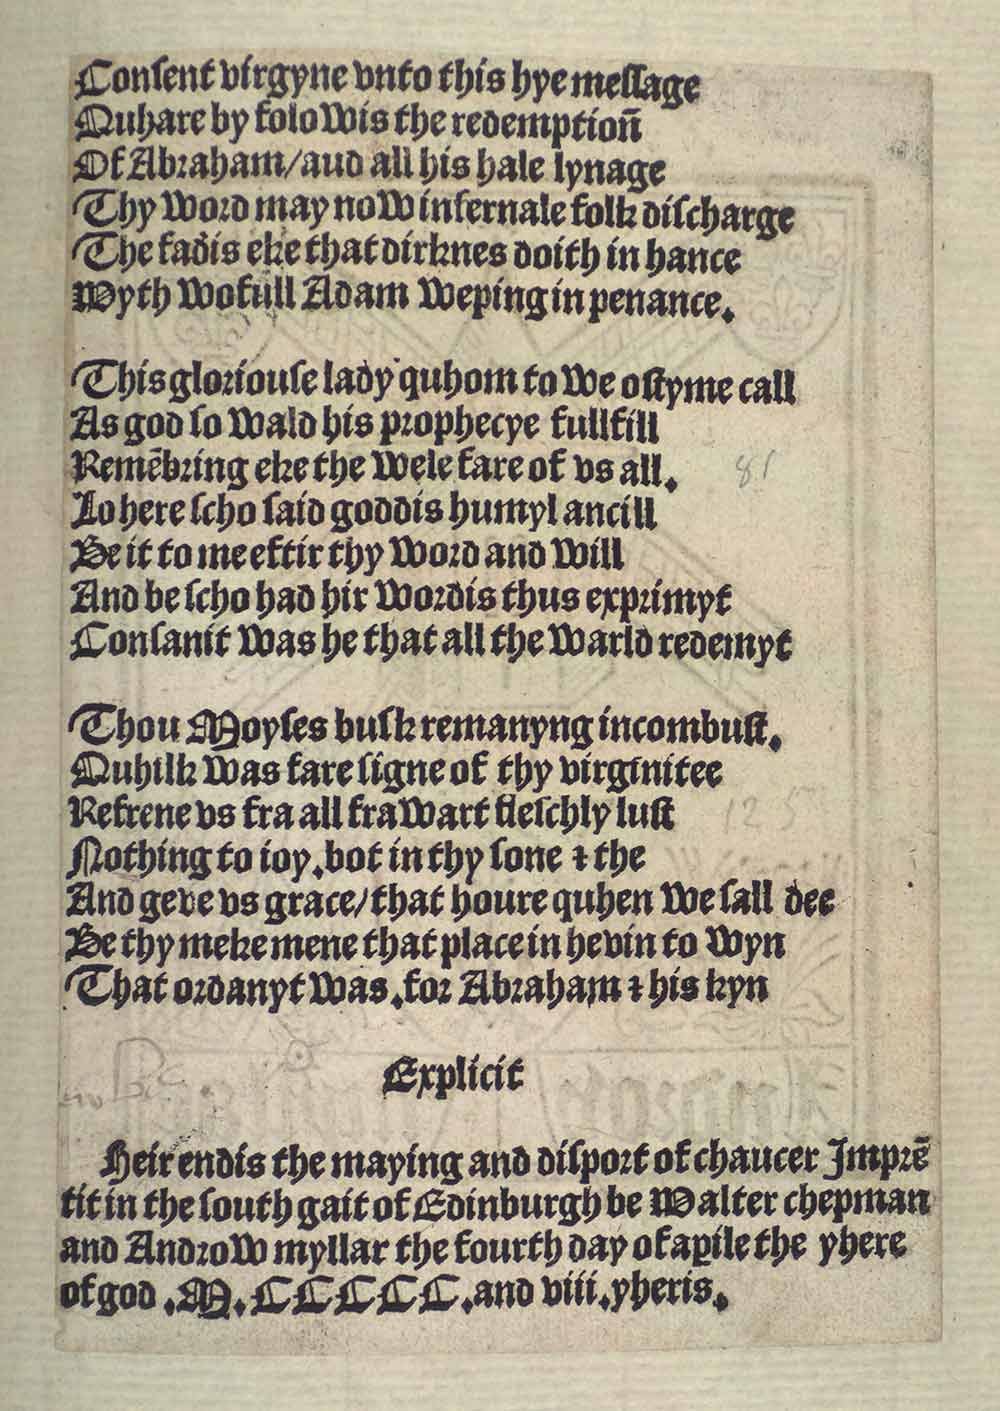 Conſent virgyne vnto this hye meſſage
Quhare by folowis the redemptioñ
Of Abraham/aud all his hale lynage
Thy word may now infernale folk diſcharge
The fadis eke that dirknes doith in hance
Wyth wofull Adam weping in penance.
This gloriouſe lady quhom to we oftyme call
As god ſo wald his prophecye fullfill
Remēbring eke the wele fare of vs all.
Lo here ſcho ſaid goddis humyl ancill
Be it to me eftir thy word and will
And be ſcho had hir wordis thus exprimyt
Conſanit was he that all the warld redemyt
Thou Moyſes buſk remanyng incombuſt.
Quhilk was fare ſigne of thy virginitee
Refrene vs fra all frawart fleſchly luſt
Nothing to ioy.bot in thy ſone ⁊ the
And geve vs grace/that houre quhen we ſall dee
Be thy meke mene that place in hevin to wyn
That ordanyt was.for Abraham ⁊ his kyn
Explicit
Heir endis the maying and diſport of chaucer Imprē
tit in the ſouth gait of Edinburgh be Walter chepman
and Androw myllar the fourth day of apile the yhere
of god .M.CCCCC.and viii.yheris.
81
125